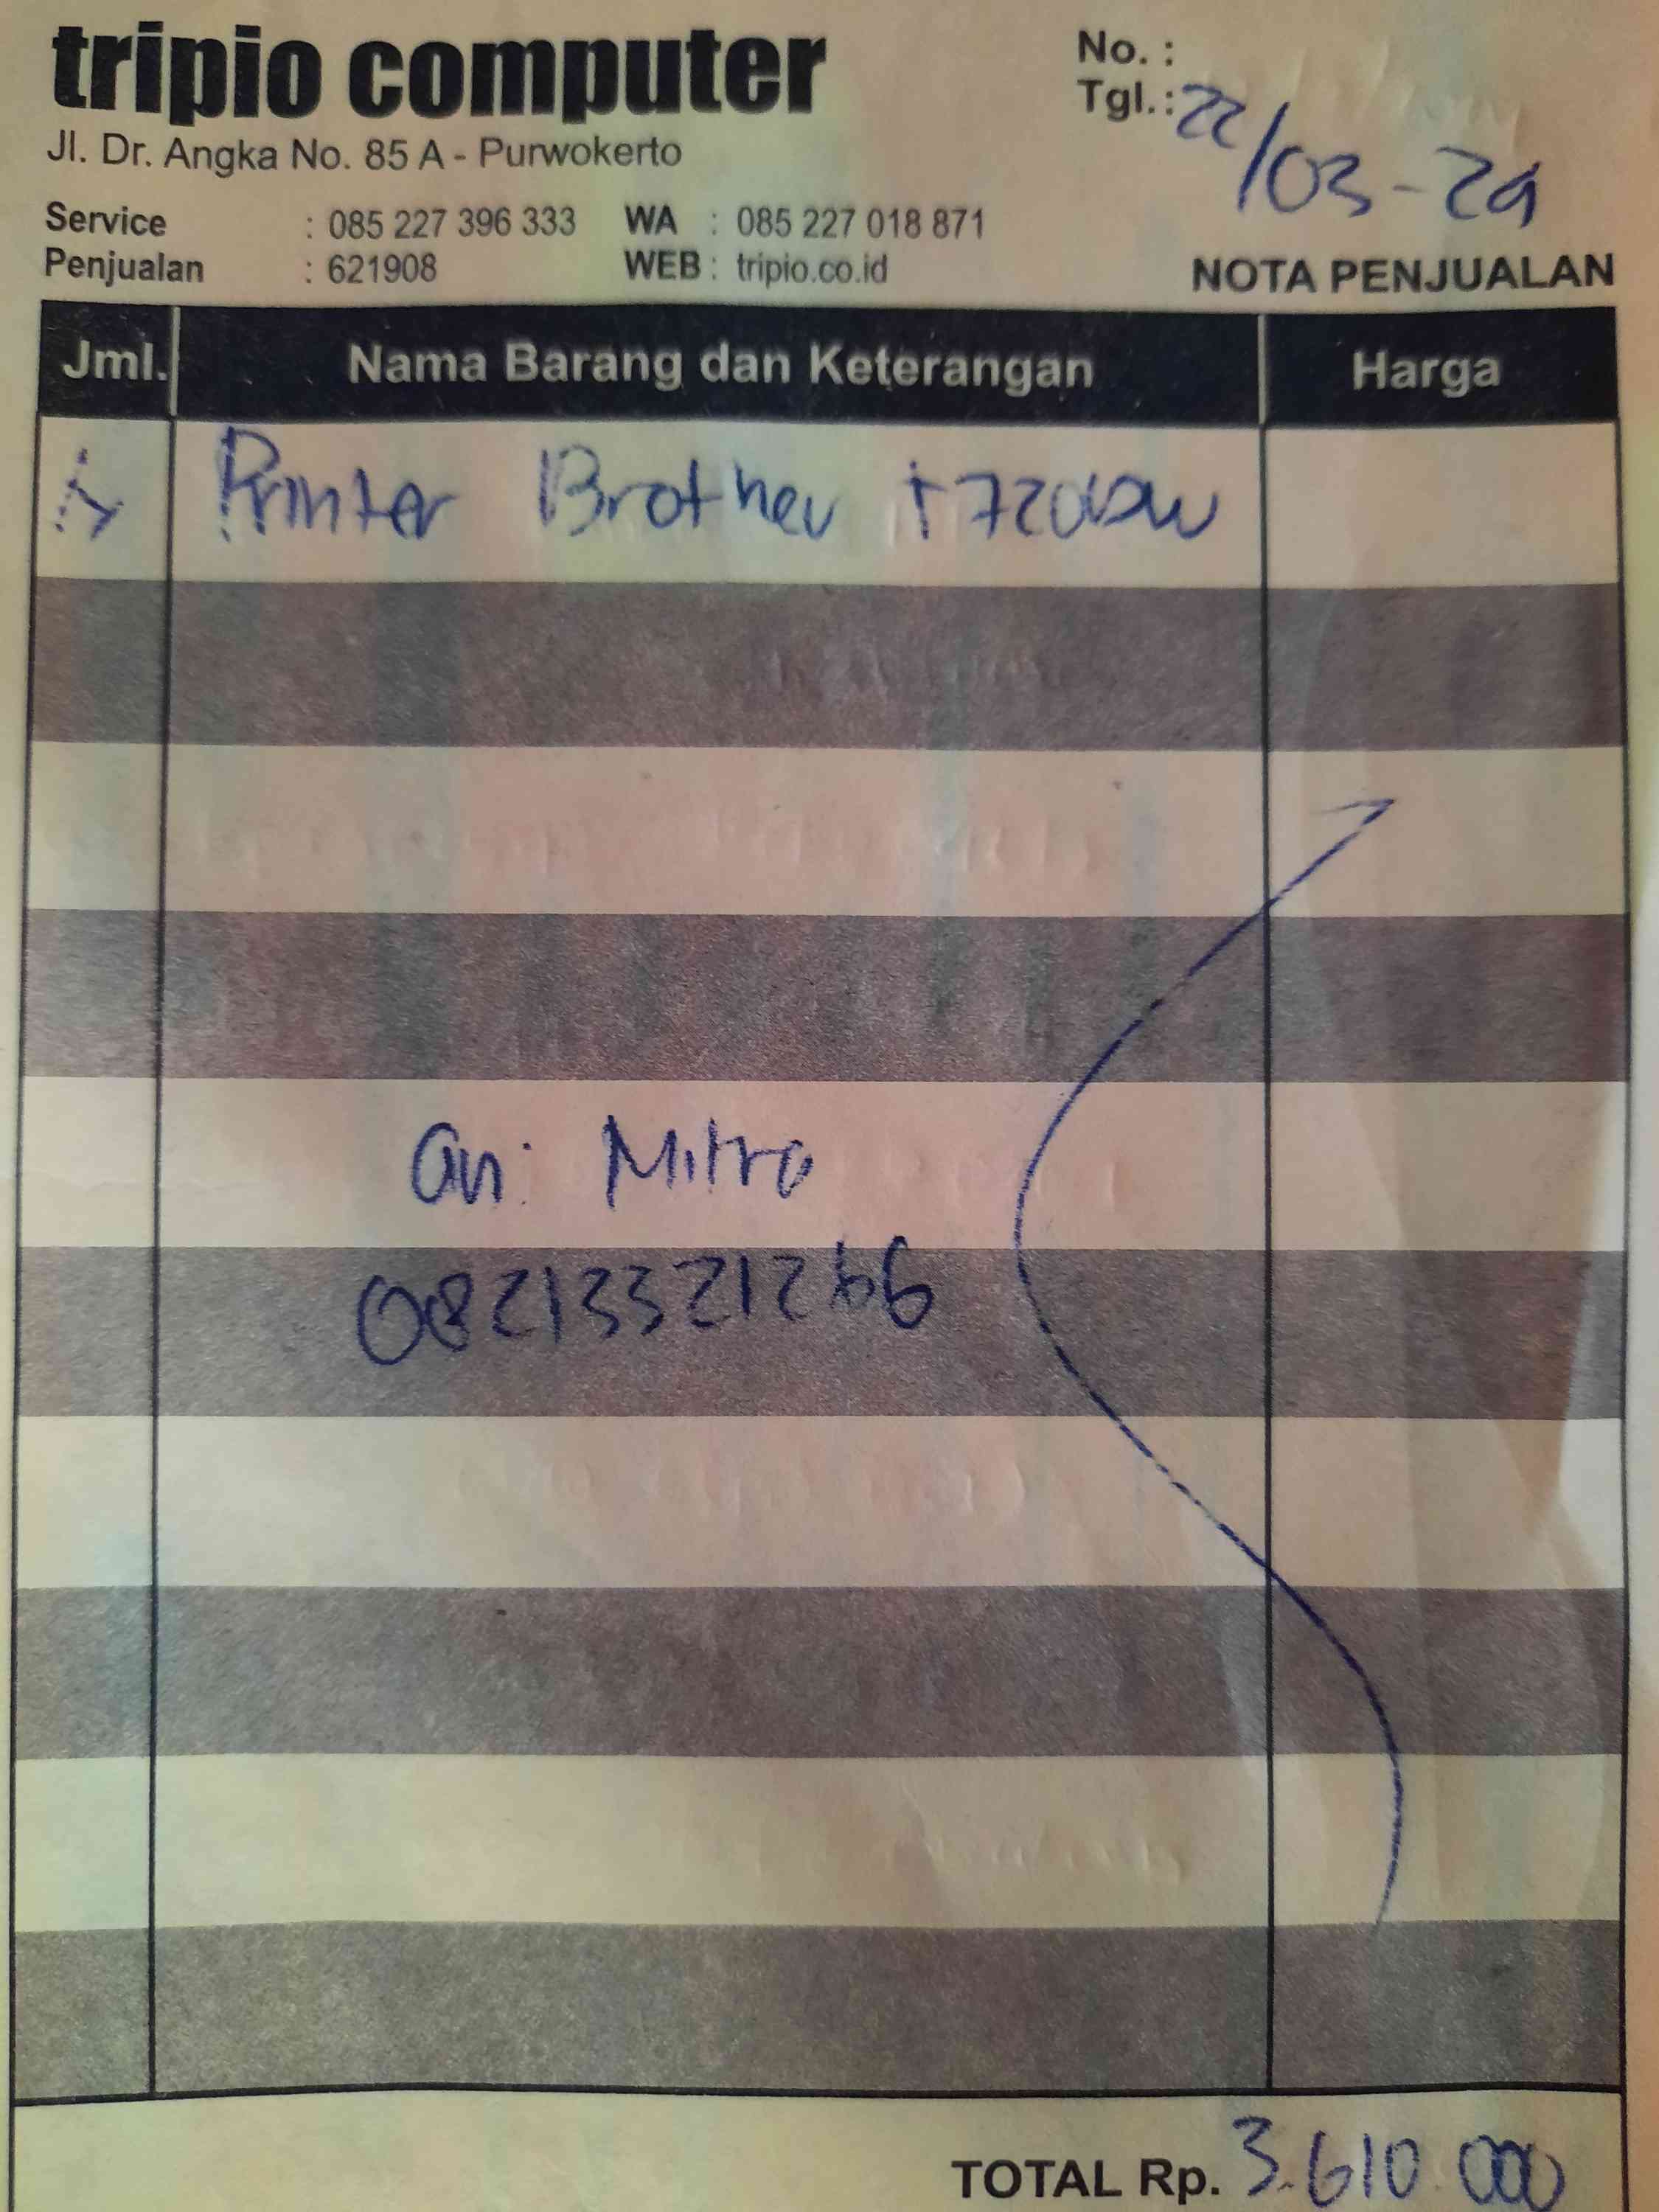 tripio computer
Jl. Dr. Angka No. 85 A - Purwokerto
Service : 085 227 396 333 WA : 085 227 018 871
Penjualan : 621908 WEB : tripio.co.id
No. :
Tgl. : 22/03-24
NOTA PENJUALAN
Jml. Nama Barang dan Keterangan Harga
1 Printer Brother T720DW
an: Mitro
08213321266
TOTAL Rp. 3.610.000